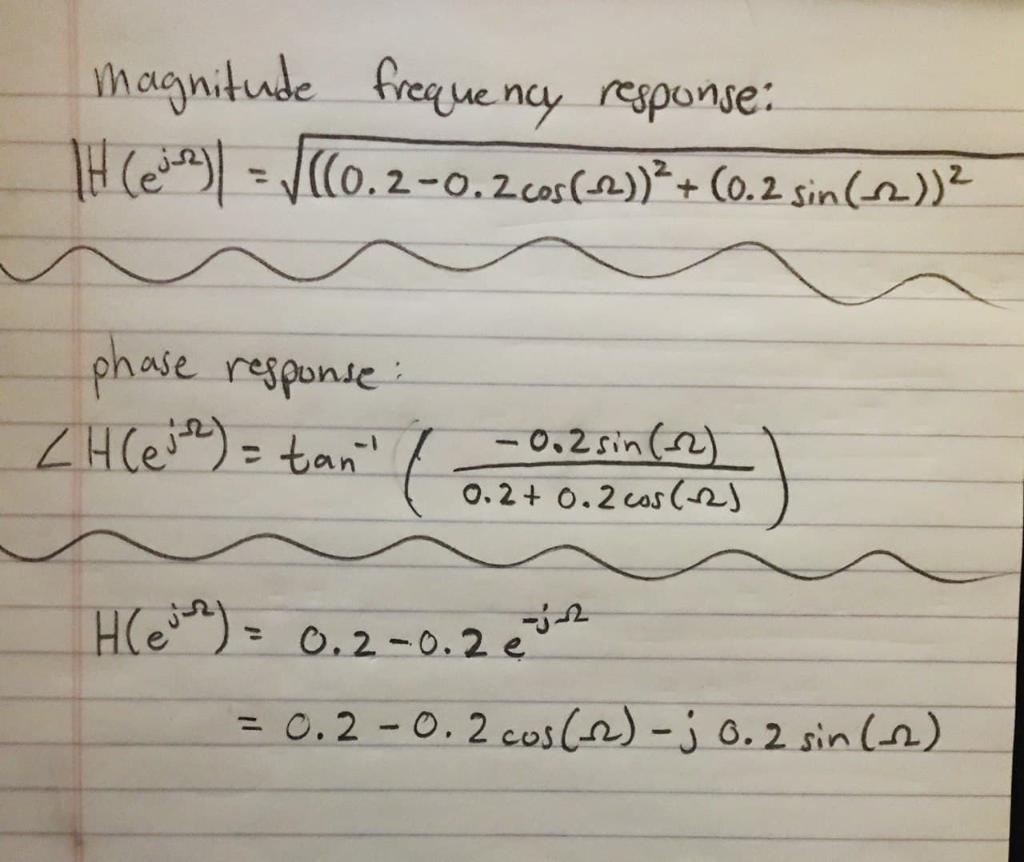 magnitude frequency response:
|H(e^{jΩ})| = √(((0.2-0.2cos(Ω))² + (0.2 sin(Ω))²
phase response:
∠H(e^{jΩ}) = tan⁻¹ ( -0.2 sin(Ω) / 0.2 + 0.2 cos(Ω) )
H(e^{jΩ}) = 0.2 - 0.2 e^{-jΩ}
= 0.2 - 0.2 cos(Ω) - j 0.2 sin(Ω)